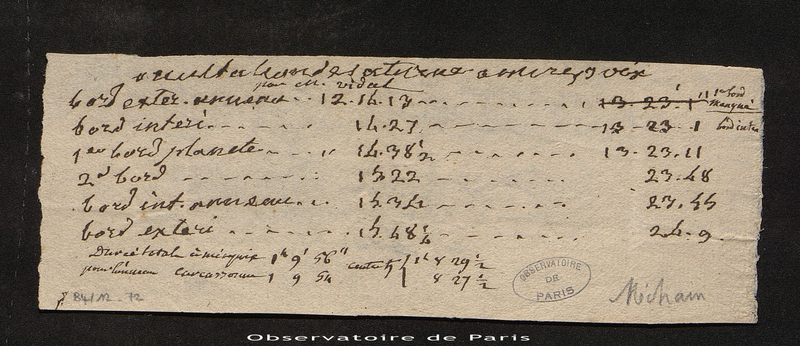 occultation de saturne a mirepoix
par M. vidal
bord exter. anneau .. 12. 14. 13 13. 23. 1 " 1er bord manqué
bord interi. 14. 27 13 - 23. 1 bord inter
1er bord planete 14. 38 ½ 13. 23. 11
2d bord 15 22 23. 48
bord int. anneau 15. 34 23. 45
bord exteri 15. 48 ¼ 24. 9.
Durée totale à mirepoix 1h 9' 56" 1h 8 29 ½
pour Carcassonne 1 9 54 8 27 ½
B4/12-72
OBSERVATOIRE DE PARIS
Méchain
Observatoire de Paris